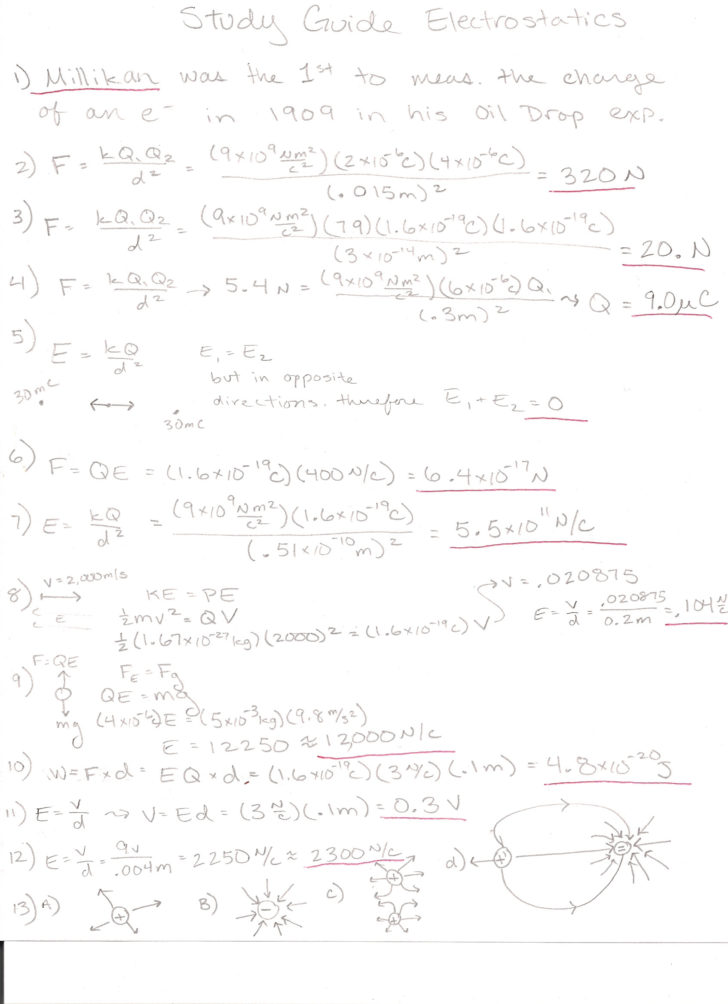 Study Guide Electrostatics
1) Millikan was the 1st to meas. the charge
of an e⁻ in 1909 in his Oil Drop exp.
2) F = kQ₁Q₂/d² = (9x10⁹ Nm²/c²)(2x10⁻⁶c)(4x10⁻⁶c)/(.015m)² = 320 N
3) F = kQ₁Q₂/d² = (9x10⁹ Nm²/c²)(79)(1.6x10⁻¹⁹c)(1.6x10⁻¹⁹c)/(3x10⁻¹⁴m)² = 20. N
4) F = kQ₁Q₂/d² → 5.4 N = (9x10⁹ Nm²/c²)(6x10⁻⁶c)Q₁/(.3m)² ⇝ Q = 9.0μC
5) E = kQ/d² E₁ = E₂
but in opposite
30mC ↔ 30mC directions. therefore E₁ + E₂ = 0
6) F = QE = (1.6x10⁻¹⁹c)(400 N/c) = 6.4x10⁻¹⁷N
7) E = kQ/d² = (9x10⁹ Nm²/c²)(1.6x10⁻¹⁹c)/(.51x10⁻¹⁰m)² = 5.5x10¹¹ N/c
8) V=2,000m/s KE = PE → V = .020875
E ½mv² = QV E = V/d = .020875/0.2m = .104 N/c
½(1.67x10⁻²⁷kg)(2000)² = (1.6x10⁻¹⁹c)V
9) F=QE F_E = F_g
QE = mg
mg (4x10⁻⁶)E = (5x10⁻³kg)(9.8 m/s²)
E = 12250 ≈ 12,000 N/c
10) W=Fxd = EQxd = (1.6x10⁻¹⁹c)(3 N/c)(.1m) = 4.8x10⁻²⁰J
11) E = V/d ⇝ V = Ed = (3 N/c)(.1m) = 0.3 V
12) E = V/d = 9v/.004m = 2250 N/c ≈ 2300 N/c
13) A) + B) − c) + + d) + =